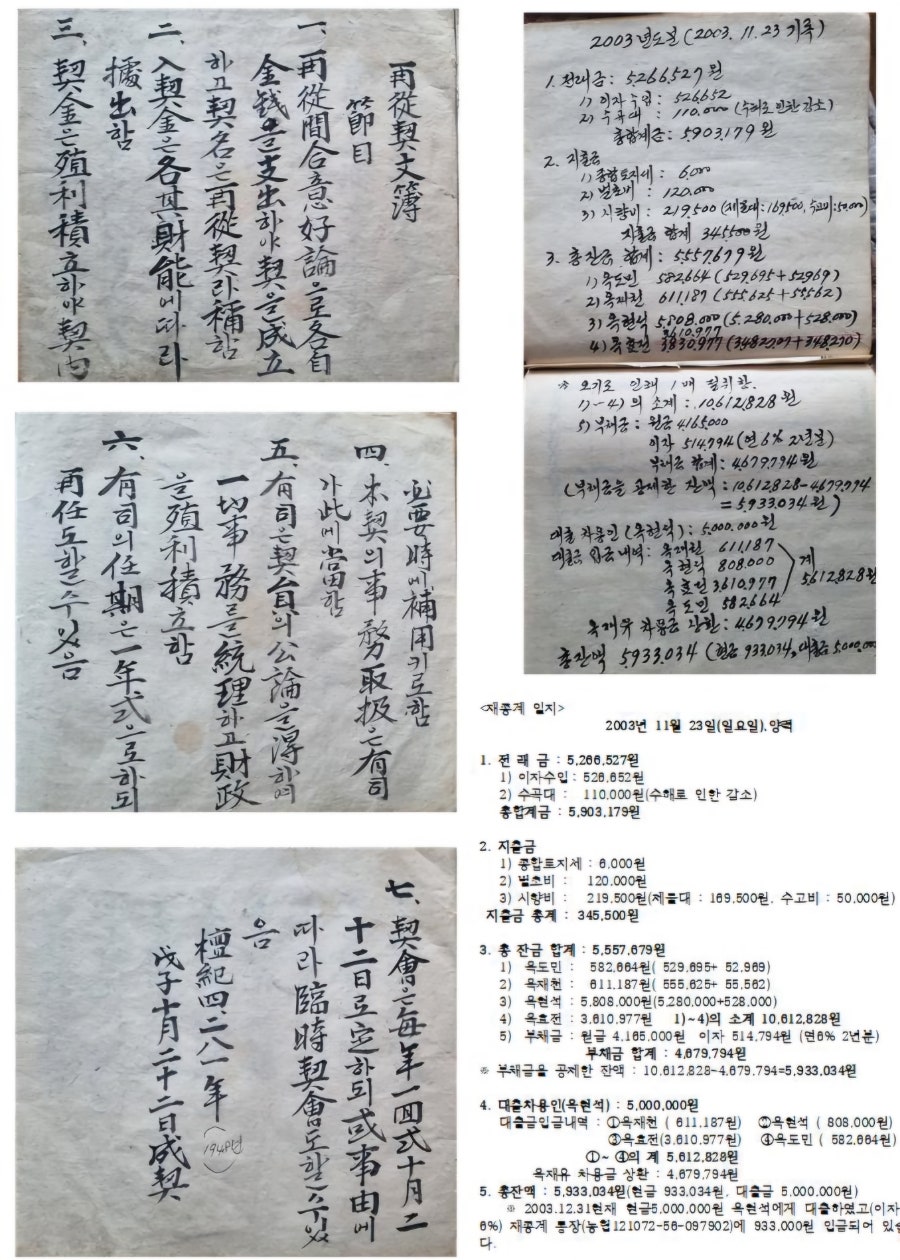 再從契文簿
節目
一、再從間合意好論으로各自
金錢을支出하야契을成立
하고契名은再從契라稱함
二、入契金은各其財能에따라
據出함
三、契金은殖利積立하야契內
必要時에補用키로함
四、本契의事務取扱은有司
가此에當함
五、有司은契員의公論을得하여
一切事務를統理하고財政
을殖利積立함
六、有司의任期은一年式으로하되
再任도할수있음
七、契會은每年一回式十月二
十二日로定하되或事由에
따라臨時契會도할수있
음
檀紀四二八一年(1948년)
戊子十月二十二日成契
2003년도분(2003. 11. 23 기록)
1. 전래금 : 5,266,527원
1) 이자수입 : 526,652
2) 수곡대 : 110,000 (수해로 인한 감소)
총합계금 : 5,903,179 원
2. 지출금
1) 종합토지세 : 6,000
2) 벌초비 : 120,000
3) 시향비 : 219,500 (제물대 : 169,500, 수고비 : 50,000)
지출금 합계 345,500원
3. 총잔금 합계 : 5,557,679원
1) 옥도민 582,664 (529,695+52,969)
2) 옥재천 611,187 (555,625+55,562)
3) 옥현석 5,808,000 (5,280,000+528,000)
3,610,977
4) 옥효전 3,830,977 (3,482,707+348,270)
※ 오기로 인해 1매 절취함.
1)~4)의 소계 : 10,612,828원
5) 부채금 : 원금 4,165,000
이자 514,794 (연6% 2년분)
부채금 합계 : 4,679,794원
(부채금을 공제한 잔액 : 10,612,828-4,679,794
=5,933,034원)
대출 차용인 (옥현석) : 5,000,000원
대출금 입금내역 : 옥재천 611,187
옥현석 808,000
옥효전 3,610,977
옥도민 582,664
계
5,612,828원
옥재유 차용금 상환 : 4,679,794원
총잔액 5,933,034 (현금 933,034, 대출금 5,000,000
<재종계 일지>
2003년 11월 23일(일요일).양력
1. 전 래 금 : 5,266,527원
1) 이자수입 : 526,652원
2) 수곡대 : 110,000원(수해로 인한 감소)
총합계금 : 5,903,179원
2. 지출금
1) 종합토지세 : 6.000원
2) 벌초비 : 120.000원
3) 시향비 : 219.500원(제물대 : 169,500원, 수고비 : 50,000원)
지출금 총계 : 345,500원
3. 총 잔금 합계 : 5,557,679원
1) 옥도민 : 582,664원( 529,695+ 52,969)
2) 옥재천 : 611.187원( 555,625+ 55,562)
3) 옥현석 : 5,808,000원(5,280,000+528,000)
4) 옥효전 : 3,610,977원 1)~4)의 소계 10,612,828원
5) 부채금 : 원금 4,165,000원 이자 514,794원 (연6% 2년분)
부채금 합계 : 4,679,794원
※ 부채금을 공제한 잔액 : 10,612,828-4,679,794=5,933,034원
4. 대출차용인(옥현석) : 5,000,000원
대출금입금내역 : ①옥재천 ( 611,187원) ②옥현석 ( 808,000원)
③옥효전(3,610,977원) ④옥도민 ( 582,664원)
①~ ④의 계 5,612,828원
옥재유 차용금 상환 : 4,679,794원
5. 총잔액 : 5,933,034원(현금 933,034원, 대출금 5,000,000원)
※ 2003.12.31현재 현금5,000,000원 옥현석에게 대출하였고(이자
6%) 재종계 통장(농협121072-56-097902)에 933,000원 입금되어 있습
다.